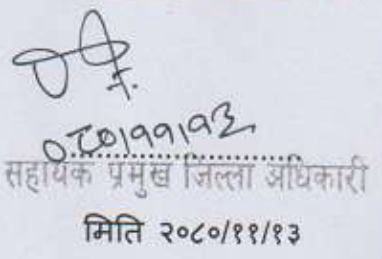 ०८०।११।१३
सहायक प्रमुख जिल्ला अधिकारी
मिति २०८०/११/१३